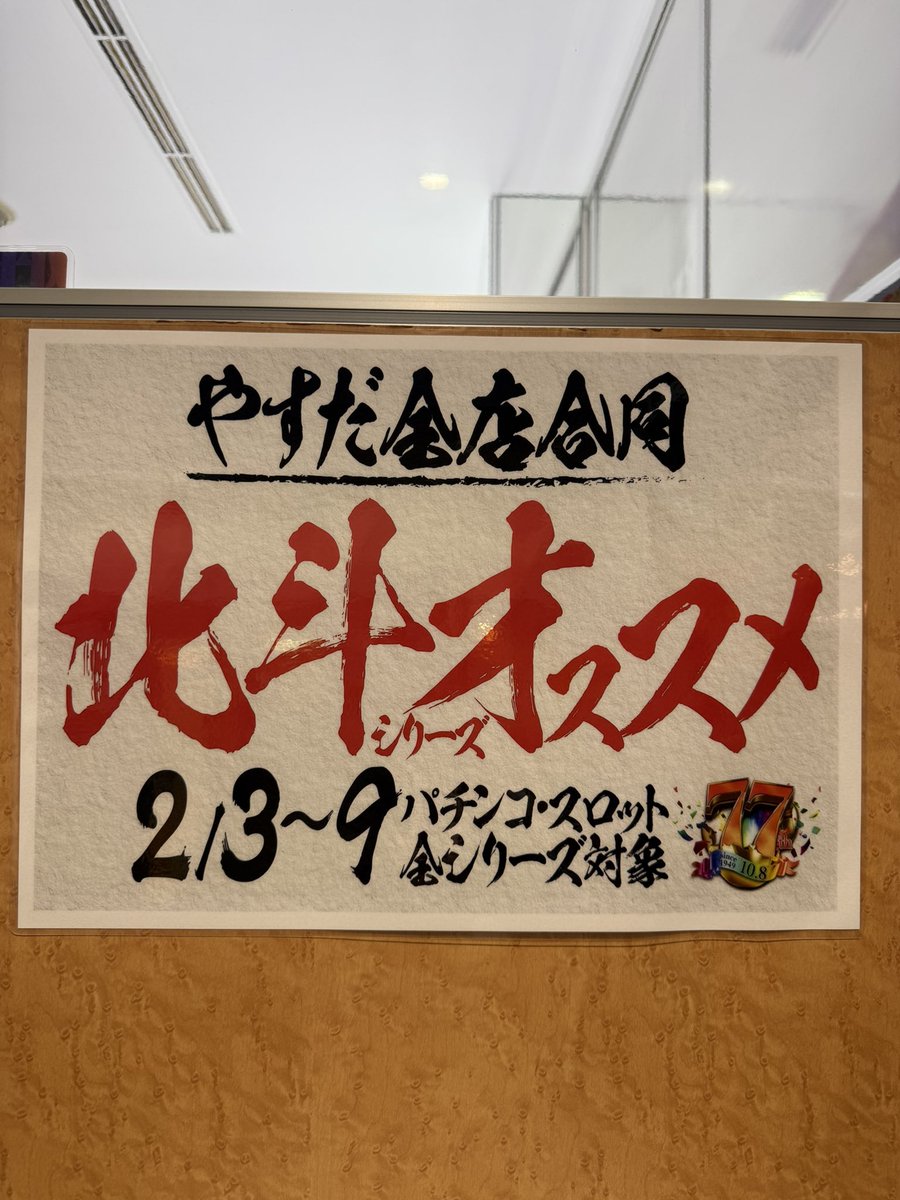 やすだ全店合同
北斗シリーズオススメ
2/3～9 パチンコ・スロット
全シリーズ対象
77
since 1949 10.8